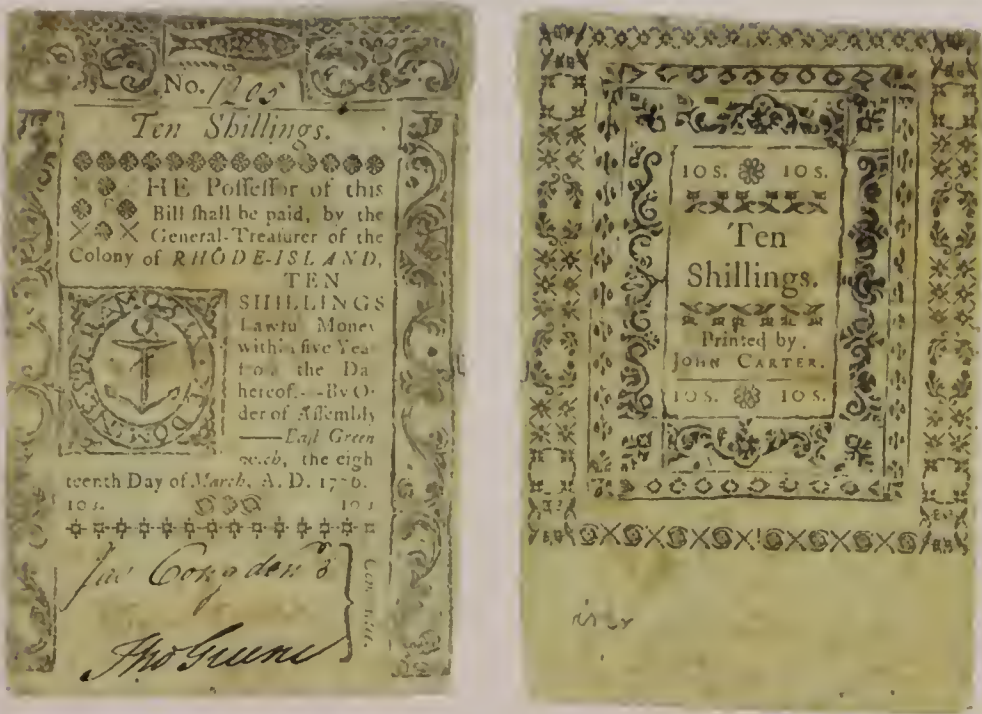 No. 1205
Ten Shillings.
HE Poſſeſſor of this
Bill ſhall be paid, by the
General-Treaſurer of the
Colony of RHODE-ISLAND,
TEN
SHILLINGS
Lawfu Money
within five Yea
from the Da
hereof.--By O-
der of Aſſembly
——Eaſt Green
wich, the eigh
teenth Day of March, A. D. 1776.
10s. 10s
Congden
Tho Greene
10S. 10S.
Ten
Shillings.
Printed by
JOHN CARTER.
10S. 10S.